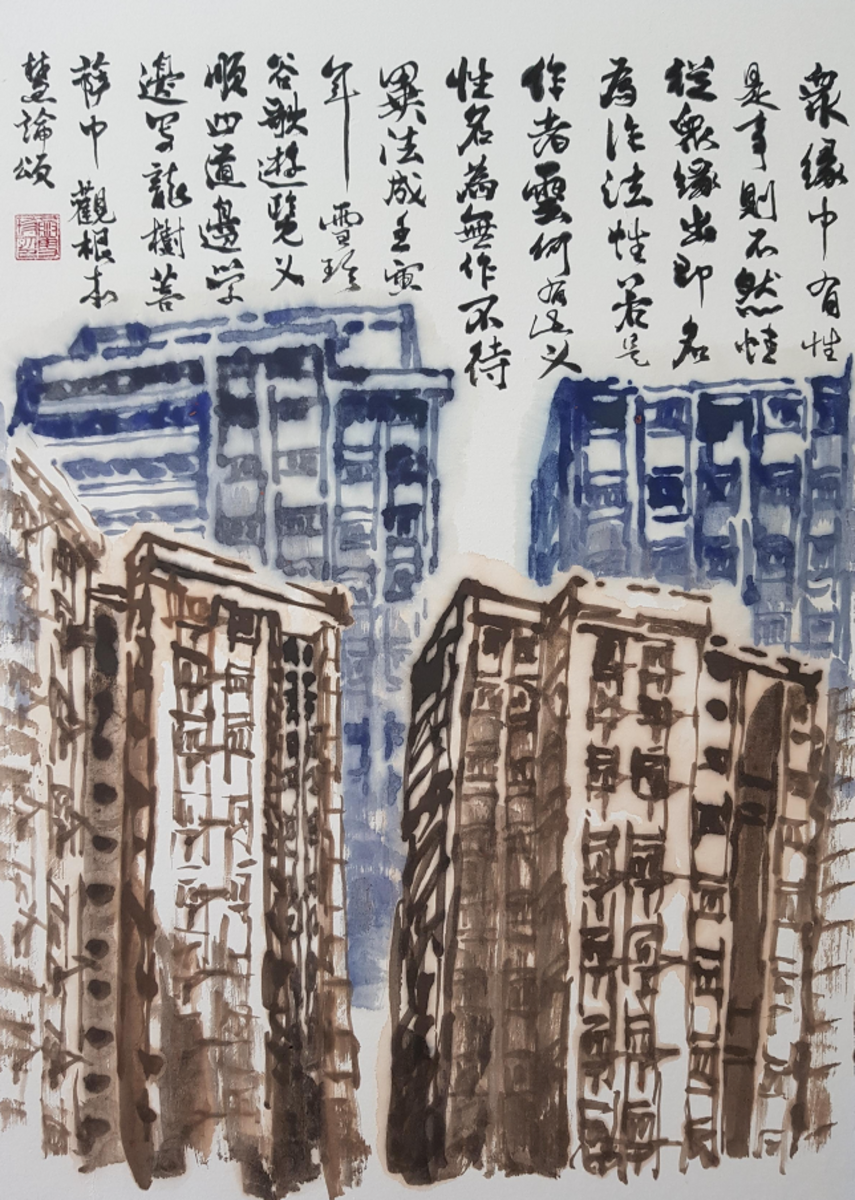 衆緣中有性
是事則不然性
從衆緣出即名
為作法性若是
作者雲何有此义
性名為無作不待
異法成壬寅
年雪珍
谷歌遊覽义
順四道邊学
邊写龍樹菩
薩中觀根本
慧論頌